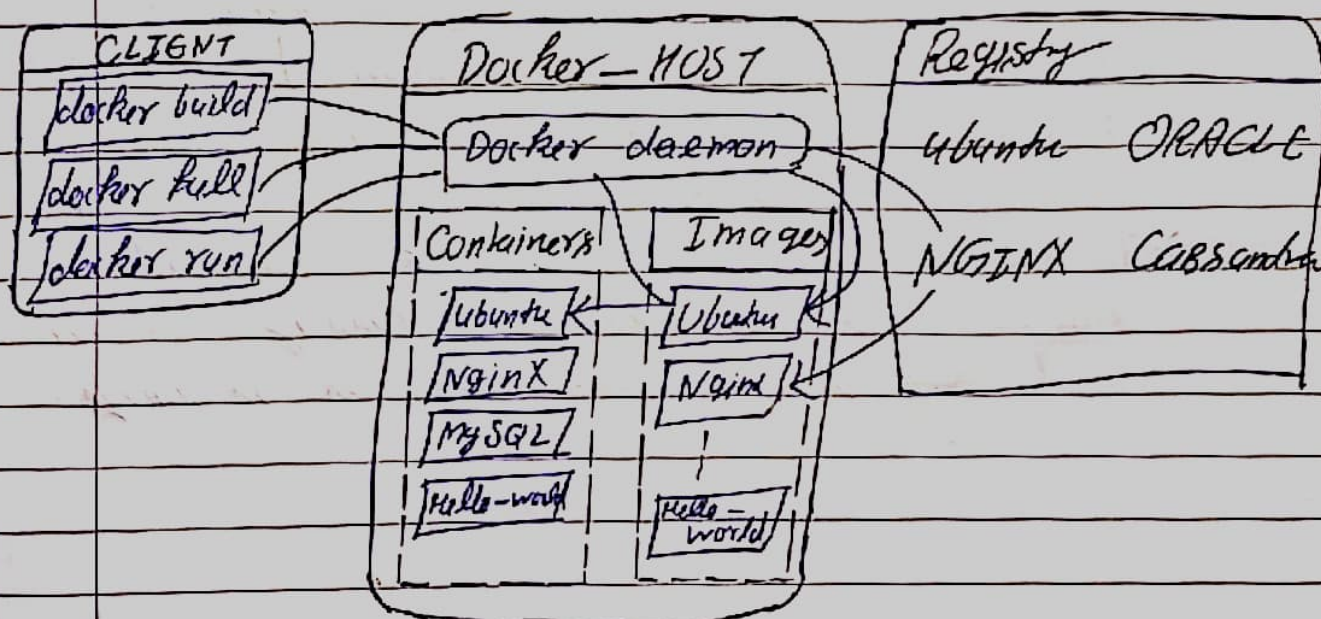 CLIENT
docker build
docker pull
docker run
Docker_HOST
Docker daemon
Containers
Ubuntu
NginX
MySQL
Hello-world
Images
Ubuntu
Nginx
Hello-
world
Registry
Ubuntu ORACLE
NGINX Cassandra